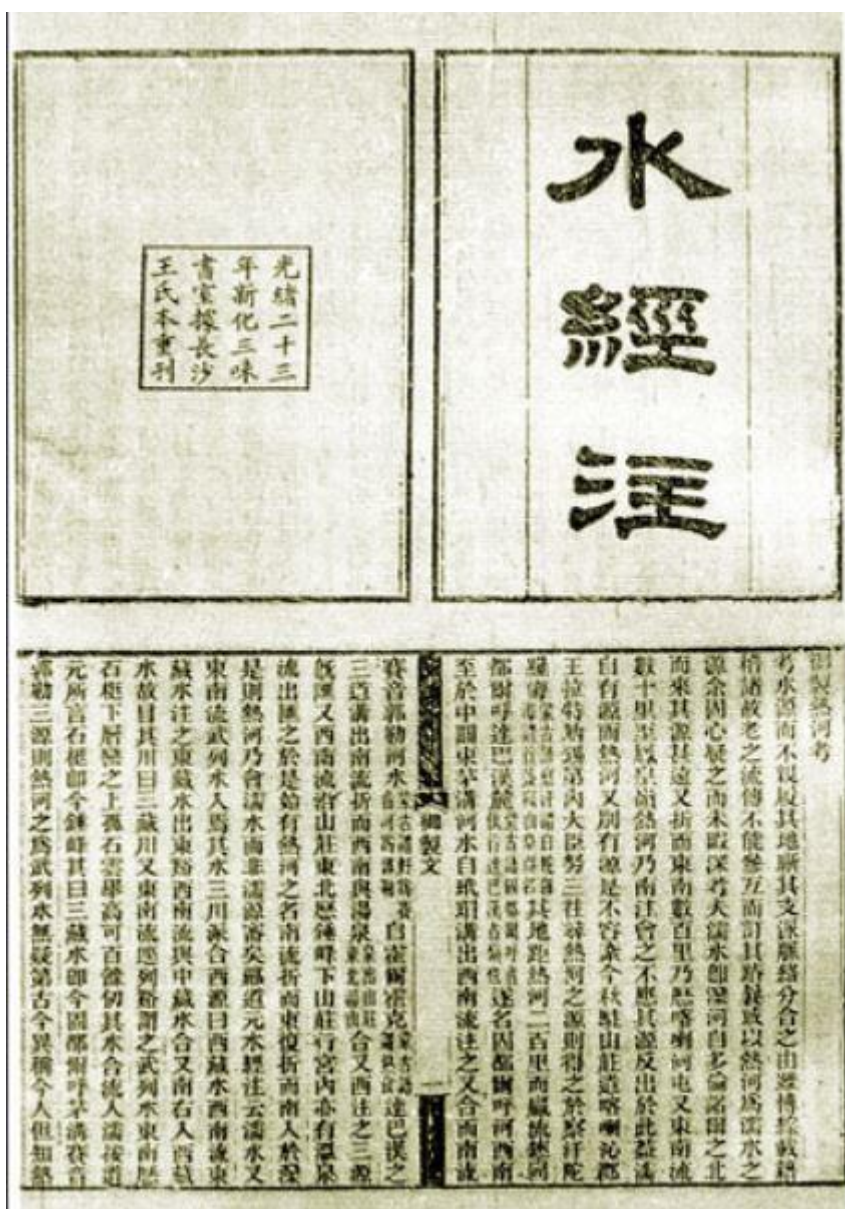 水經注
光緒二十三
年新化三味
書室據長沙
王氏本重刊
御製熱河考
考水源而不親履其地晰其支派脈絡分合之由雖博綜載籍
稽諸故老之流傳不能參互而訂其踳駁或以熱河爲濡水之
源余固心疑之而未暇深考夫濡水卽灤河自多倫諾爾之北
而來其源甚遠又折而東南數百里乃歷喀喇河屯又東南流
數十里至鳳皇嶺熱河乃南注會之不應其源反出於此蓋濡
自有源而熱河又別有源是不容紊今秋駐山莊遣喀喇沁郡
王拉特納錫第內大臣努三往尋熱河之源則得之於察汗陀
羅海其地距熱河二百里而嬴流經固
都爾呼達巴漢麓遂名固都爾呼河西南
至於中關東茅溝河水自玳瑁溝出西南流注之又合而南流
御製文
一
賽音郭勒河水自霍爾霍克達巴漢之
三道溝出南流折而西南與湯泉合又西注之三源
旣匯又西南流沿山莊東北歷錘峰下山莊行宮內亦有溫泉
流出匯之於是始有熱河之名南流折而東復折而南入於灤
是則熱河乃會濡水而非濡源審矣酈道元水經注云濡水又
東南流武列水入焉其水三川派合西源曰西藏水西南流東
藏水注之東藏水出東谿西南流與中藏水合又南右入西藏
水故目其川曰三藏川又東南流逕列谿謂之武列水東南歷
石梃下層巒之上孤石雲舉高可百餘仞其水合流入濡按道
元所言石梃卽今錘峰其曰三藏水卽今固都爾呼茅溝賽音
郭勒三源則熱河之爲武列水無疑第古今異稱今人但知熱